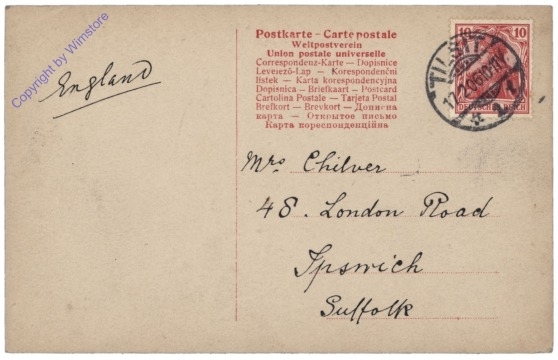 Copyright by Wimstore
England
Postkarte - Carte postale
Weltpostverein
Union postale universelle
Correspondenz-Karte - Dopisnice
Levelező-Lap - Korespondenční
lístek - Karta korespondencyjna
Dopisnica - Briefkaart - Postcard
Cartolina Postale - Tarjeta Postal
Brefkort - Brevkort - Дописна
карта - Открытое письмо
Карта кореспонденційна
10 10
DEUTSCHES REICH
TILSIT
Mrs Chilver
48. London Road
Ipswich
Suffolk